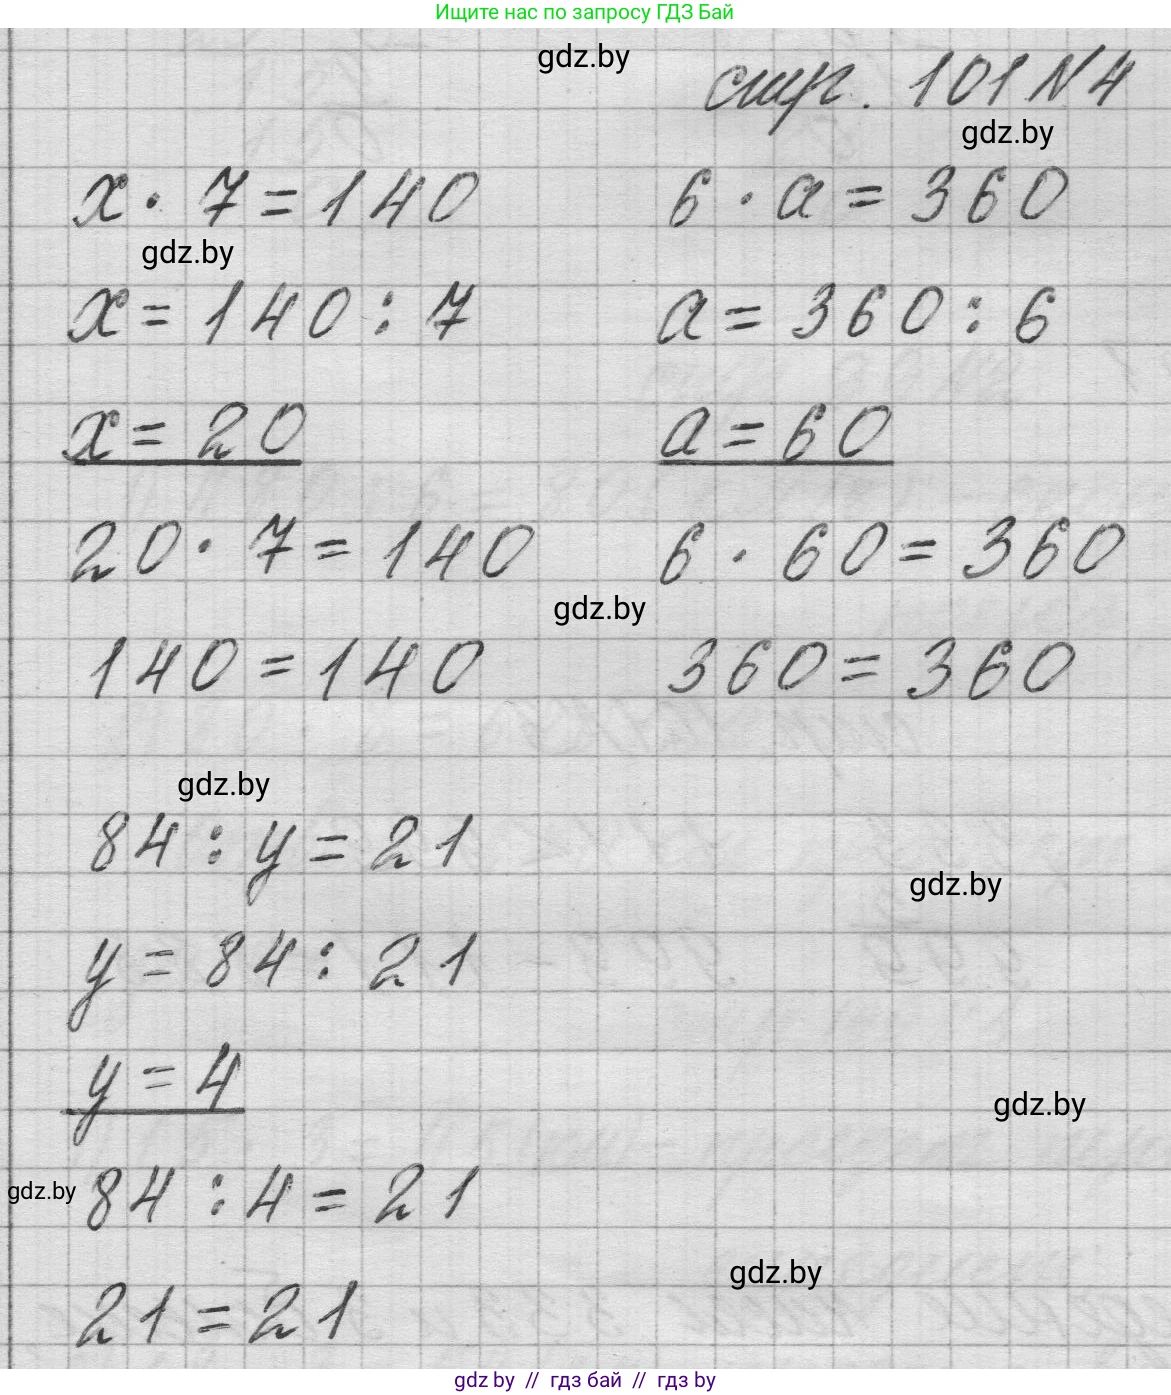 Ищите нас по запросу ГДЗ Бай
gdz.by
стр. 101 №4
gdz.by
x · 7 = 140
6 · a = 360
gdz.by
x = 140 : 7
a = 360 : 6
x = 20
a = 60
20 · 7 = 140
6 · 60 = 360
gdz.by
140 = 140
360 = 360
gdz.by
84 : y = 21
gdz.by
y = 84 : 21
y = 4
gdz.by
gdz.by
84 : 4 = 21
gdz.by
21 = 21
gdz by // гдз бай // gdz by